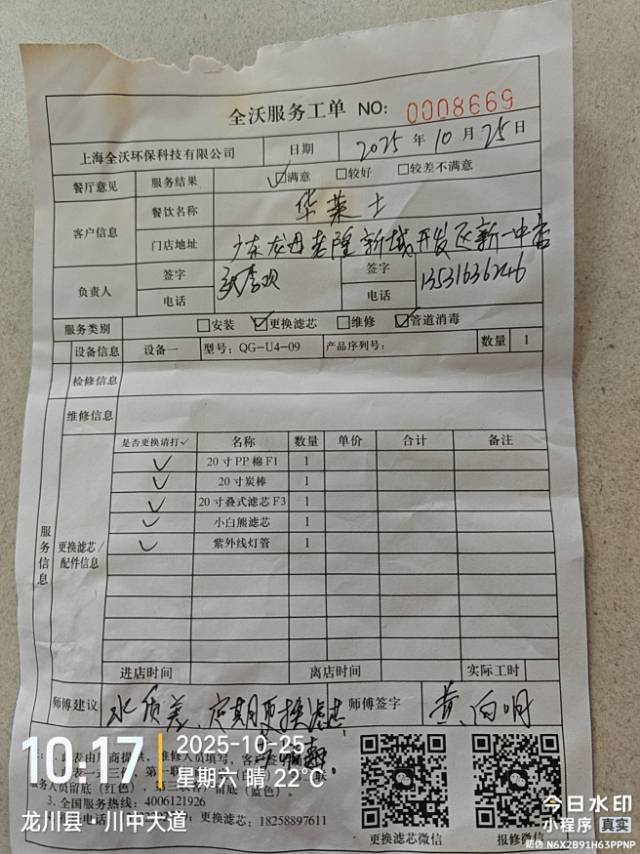 全沃服务工单 NO: 0008669
上海全沃环保科技有限公司 日期 2025 年 10 月 25 日
餐厅意见 服务结果 ☑满意 □较好 □较差不满意
客户信息 餐饮名称 华莱士
门店地址 广东龙川老隆新城开发区新一中店
负责人 签字 签字
电话 电话 13531636246
服务类别 □安装 ☑更换滤芯 □维修 ☑管道消毒
设备信息 设备一 型号: QG-U4-09 产品序列号: 数量 1
检修信息
维修信息
服务信息
更换滤芯/配件信息
是否更换请打✓ 名称 数量 单价 合计 备注
✓ 20寸PP棉F1 1
✓ 20寸炭棒 1
✓ 20寸叠式滤芯F3 1
✓ 小白熊滤芯 1
✓ 紫外线灯管 1
进店时间 离店时间 实际工时
师傅建议 水质差、定期更换滤芯 师傅签字 黄
10:17
2025-10-25
星期六 晴 22℃
龙川县·川中大道
3. 全国服务热线: 4006121926
电话: 更换滤芯: 18258897611
更换滤芯微信 报修微信
今日水印
小程序 真实
防伪 N6X2B91H63PPNP